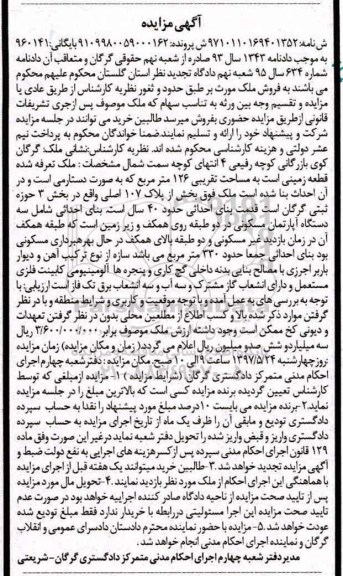 آگهی مزایده
ش نامه: ۹۷۱۰۱۱۰۱۶۹۴۰۱۳۵۲ ش پرونده: ۹۱۰۹۹۸۰۰۵۹۰۰۰۱۶۲ بایگانی: ۹۶۰۱۴۱
به موجب دادنامه ۱۳۴۳ سال ۹۳ صادره از شعبه نهم حقوقی گرگان و متعاقب آن دادنامه
شماره ۶۳۴ سال ۹۵ شعبه نهم دادگاه تجدید نظر استان گلستان محکوم علیهم محکوم
می باشند به فروش ملک مورث بر طبق حدود و ثغور نظریه کارشناس از طریق عادی یا
مزایده و تقسیم وجه بین ورثه به تناسب سهام که ملک موصوف پس ازجری تشریفات
قانونی ازطریق مزایده حضوری بفروش میرسد طالبین خرید می توانند در جلسه مزایده
شرکت و پیشنهاد خود را ارائه و تسلیم نمایند.ضمنا خواندگان محکوم به پرداخت نیم
عشر دولتی و هزینه کارشناسی محکوم شده اند. نظریه کارشناس:نشانی ملک: گرگان
کوی بازرگانی کوچه رفیعی ۴ انتهای کوچه سمت شمال مشخصات : ملک تعرفه شده
قطعه زمینی است به مساحت تقریبی ۱۲۶ متر مربع که به صورت دستارمی است و در
آن احداث بنا شده است ملک فوق بخشی از پلاک ۱۰۷ اصلی واقع در بخش ۳ حوزه
ثبتی گرگان است قدمت بنای احداثی حدود ۴۰ سال است. بنای احداثی شامل سه
دستگاه آپارتمان مسکونی در دو طبقه روی همکف و زیر زمین است که طبقه همکف
آن در زمان بازدید غیر مسکونی و دو طبقه بالای همکف در حال بهره‍برداری مسکونی
بود بنای احداثی جمعا حدود ۳۳۰ متر مربع می باشد سازه از نوع ترکیب آهن و دیوار
باربر اجری با مصالح بنایی بدنه داخلی گچ کاری و پنجره ها آلومینیومی کابینت فلزی
مستعمل و دارای انشعاب گاز مشترک و سه آب و سه انشعاب برق تک فاز است ارزیابی: با
توجه به بررسی های به عمل آمده و با توجه موقعیت و کاربری و شرایط منطقه و با در نظر
گرفتن موارد ذکر شده بالا و کسب اطلاع از مطلعین محلی بدون در نظر گرفتن تعهدات
و دیونی کخ ممکن است وجود داشته ارزش ملک موصوف برابر ۳/۶۰۰/۰۰۰/۰۰۰ ریال
سه میلیاردو شش صدو میلیون ریال اعلام می گردد.( زمان و مکان مزایده) زمان مزایده
:روزچهارشنبه ۱۳۹۷/۵/۲۴ ساعت ۹ الی ۱۰ صبح. مکان مزایده : دفترشعبه چهارم اجرای
احکام مدنی متمرکز دادگستری گرگان (شرایط مزایده ) ۱- مزایده ازمبلغی که توسط
کارشناس تعیین گردیده برنده مزایده کسی است که بالاترین مبلغ را در جلسه مزایده
نماید.۲-برنده مزایده می بایست ۱۰درصد مبلغ مورد پیشنهاد را نقدا به حساب سپرده
دادگستری تودیع و مابقی آن را ظرف یک ماه از تاریخ اجرای مزایده به حساب سپرده
دادگستری واریز و قبض واریز شده را تحویل دفتر شعبه نماید درغیر این صورت وفق ماده
۱۲۹ قانون اجرای احکام مدنی سپرده پس ازکسرهزینه های اجرایی به نفع دولت ضبط و
آگهی مزایده تجدید خواهد شد. ۳-طالبین خرید میتوانند یک هفته قبل از اجرای مزایده
با هماهنگی این اجرای احکام از ملک مورد نظر بازدید نمایند.۴-تحویل مال مورد مزایده
پس از تایید صحت مزایده از ناحیه دادگاه صادر کننده اجراییه خواهد بود در صورت عدم
تایید صحت مزایده این اجرا مسئولیتی دررابطه با خریدار ندارد فقط مبلغ تودیع شده
عودت خواهد شد.۵-مزایده با حضور نماینده محترم دادستان دادسرای عمومی و انقلاب
گرگان و نماینده اجرای احکام مدنی انجام خواهد شد.
مدیر دفتر شعبه چهارم اجرای احکام مدنی متمرکز دادگستری گرگان-شریعتی